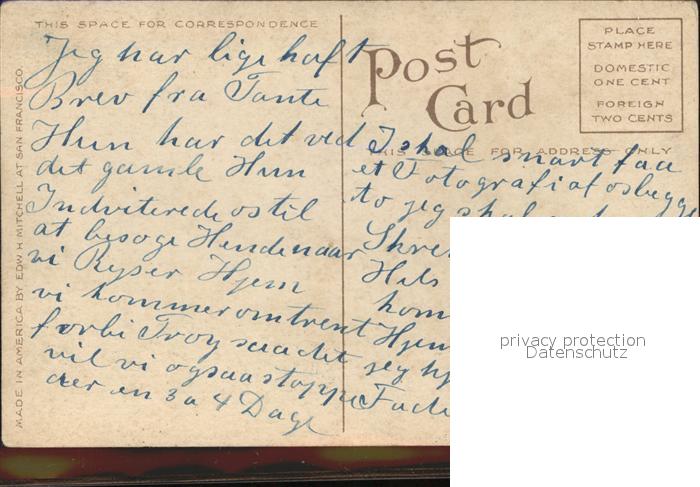 THIS SPACE FOR CORRESPONDENCE
Jeg har lige haft
Brev fra Tante
Hun har det ved
det gamle Hun
Indviterede os til
at besoge Hende naar
vi Ryser Hjem
vi kommer omtrent
forbi Troy saa det
vil vi ogsaa stoppe
der en 3 a 4 Dage
MADE IN AMERICA BY EDW. H. MITCHELL AT SAN FRANCISCO.
Post
Card
PLACE
STAMP HERE
DOMESTIC
ONE CENT
FOREIGN
TWO CENTS
THIS SPACE FOR ADDRESS ONLY
I skal snart faa
et Fotografi af os begge
to jeg skal
Skre
Hils
kom
Hjem
jeg hj
Fade
privacy protection
Datenschutz